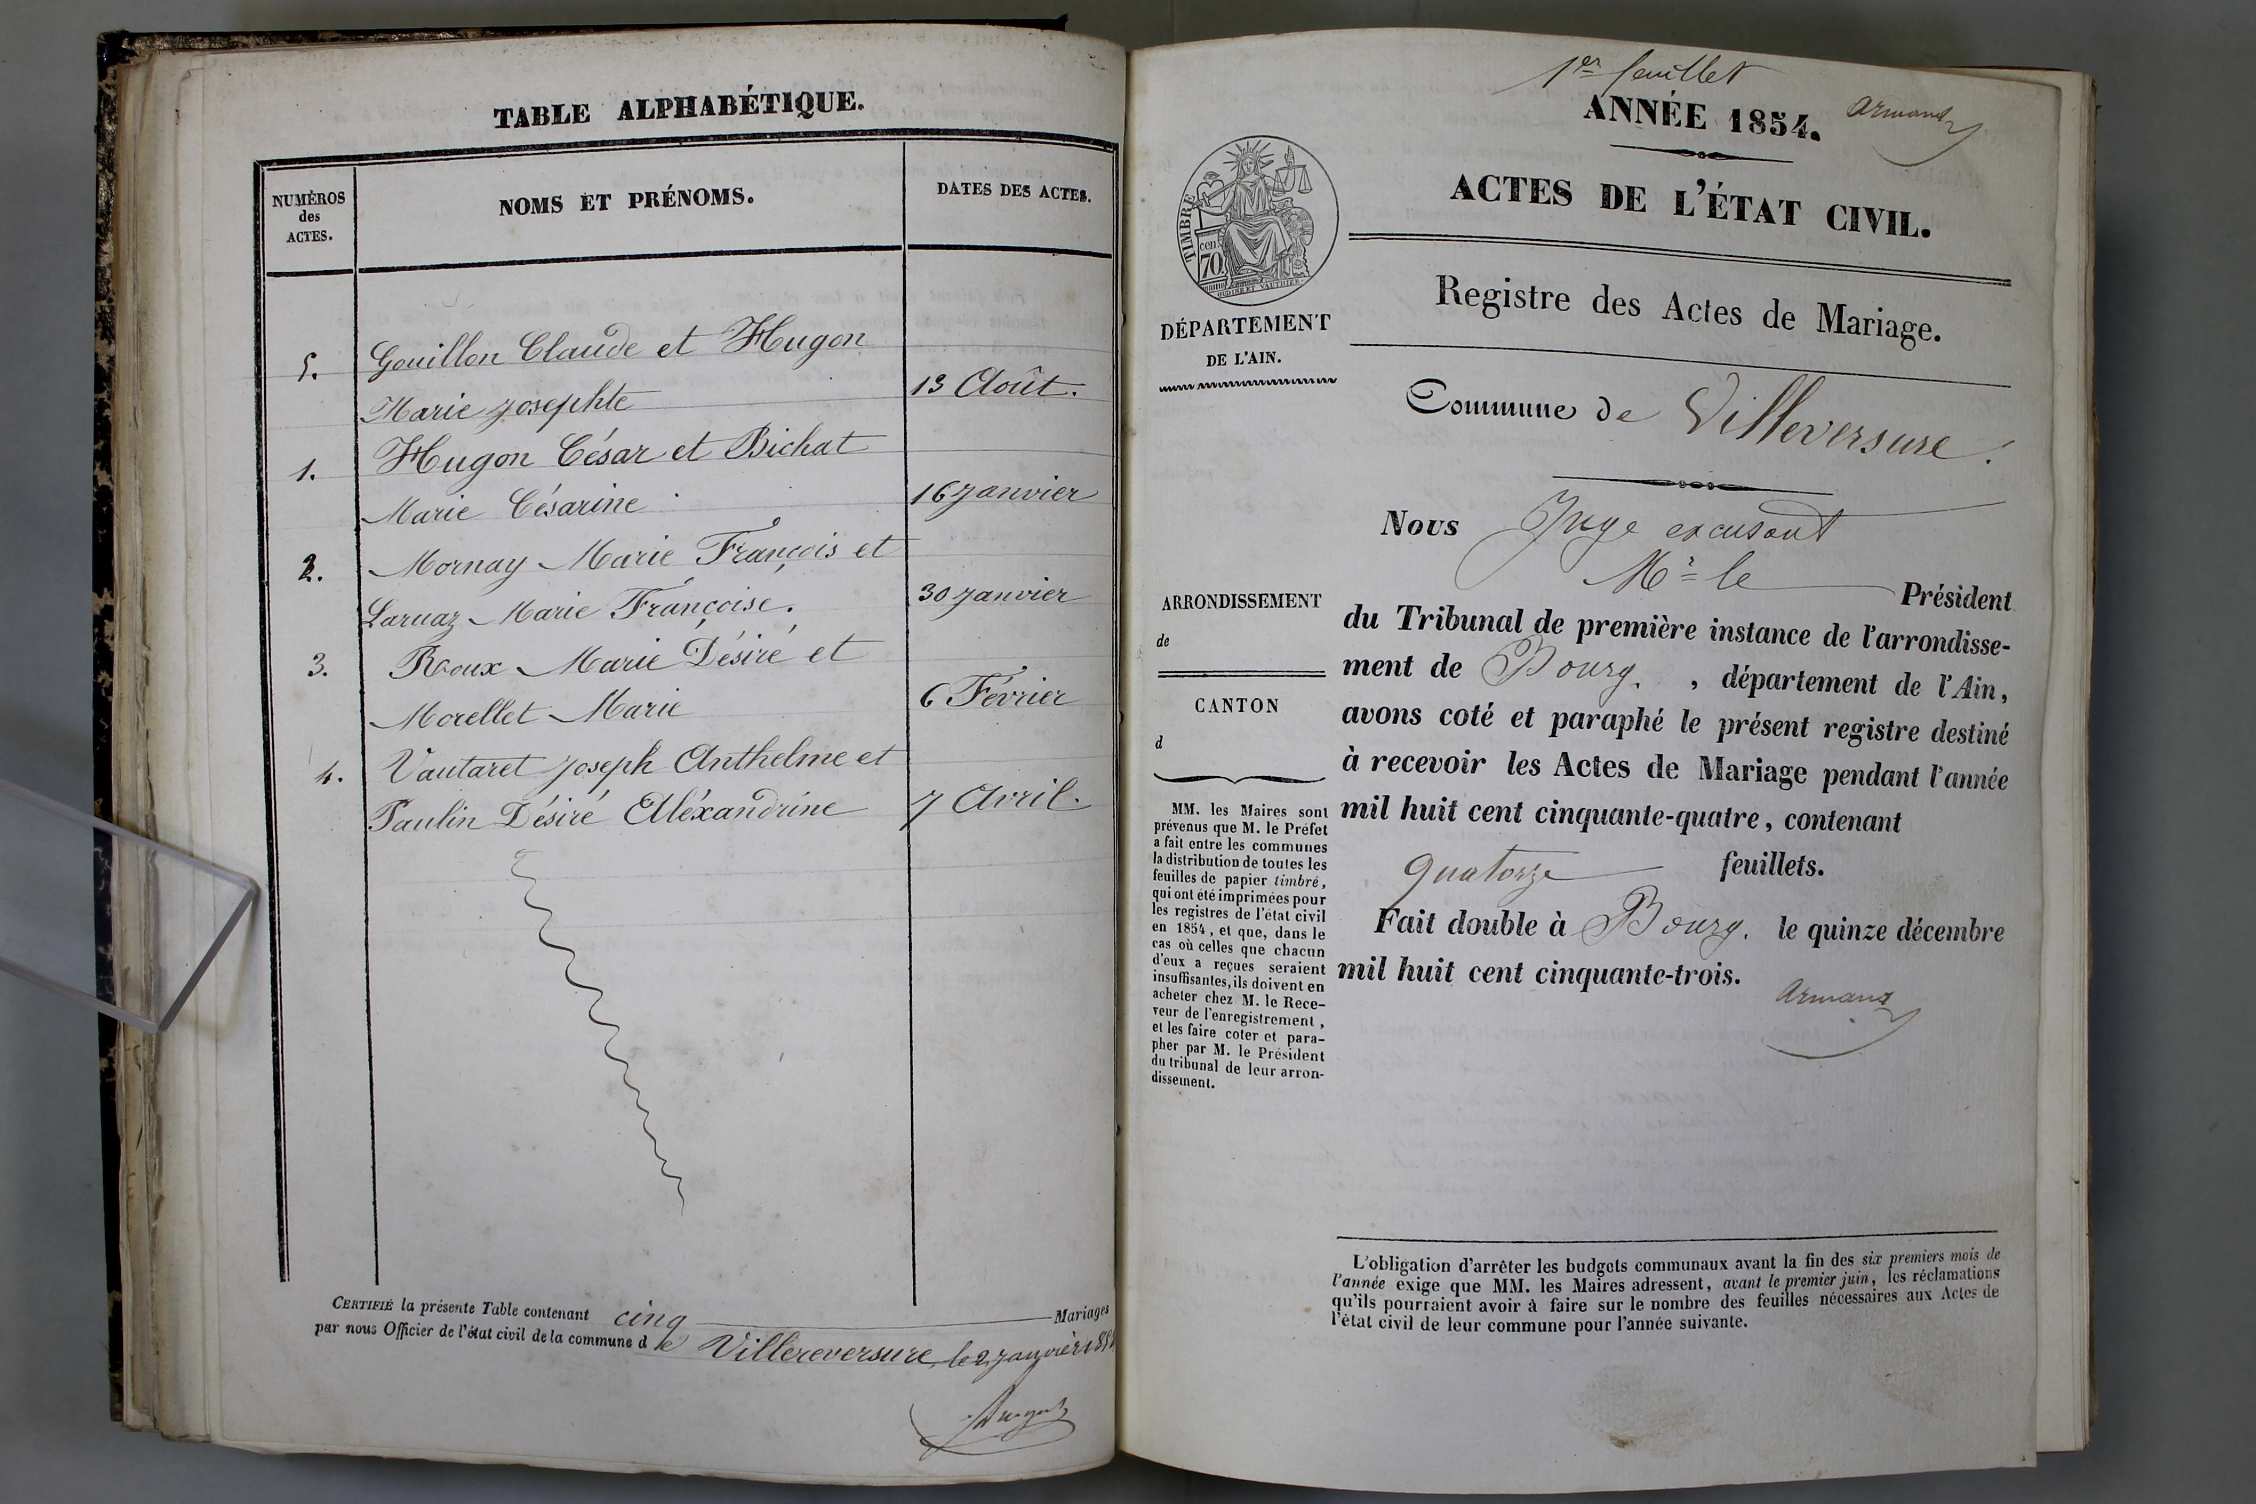 TABLE ALPHABÉTIQUE.
NUMÉROS
des
ACTES.
NOMS ET PRÉNOMS.
DATES DES ACTES.
5. Gouillon Claude et Hugon
Marie Josephte 13 Août.
1. Hugon César et Bichat
Marie Césarine 16 Janvier
2. Mornay Marie François et
Laruaz Marie Françoise. 30 Janvier
3. Roux Marie Désiré et
Morellet Marie 6 Février
4. Vautaret Joseph Anthelme et
Paulin Désiré Aléxandrine 7 Avril.
CERTIFIÉ la présente Table contenant cinq Mariages
par nous Officier de l'état civil de la commune d e Villereversure, le 2 Janvier
1er feuillet
ANNÉE 1854.
Armand
ACTES DE L'ÉTAT CIVIL.
TIMBRE
70 cen
DÉPARTEMENT
DE L'AIN.
Registre des Actes de Mariage.
Commune de Villeversure.
Nous Juge excusant
Mr le Président
du Tribunal de première instance de l'arrondisse-
ment de Bourg. , département de l'Ain,
avons coté et paraphé le présent registre destiné
à recevoir les Actes de Mariage pendant l'année
mil huit cent cinquante-quatre, contenant
quatorze feuillets.
Fait double à Bourg. le quinze décembre
mil huit cent cinquante-trois.
Armand
ARRONDISSEMENT
de
CANTON
d
MM. les Maires sont
prévenus que M. le Préfet
a fait entre les communes
la distribution de toutes les
feuilles de papier timbré,
qui ont été imprimées pour
les registres de l'état civil
en 1854, et que, dans le
cas où celles que chacun
d'eux a reçues seraient
insuffisantes, ils doivent en
acheter chez M. le Rece-
veur de l'enregistrement,
et les faire coter et para-
pher par M. le Président
du tribunal de leur arron-
dissement.
L'obligation d'arrêter les budgets communaux avant la fin des six premiers mois de
l'année exige que MM. les Maires adressent, avant le premier juin, les réclamations
qu'ils pourraient avoir à faire sur le nombre des feuilles nécessaires aux Actes de
l'état civil de leur commune pour l'année suivante.